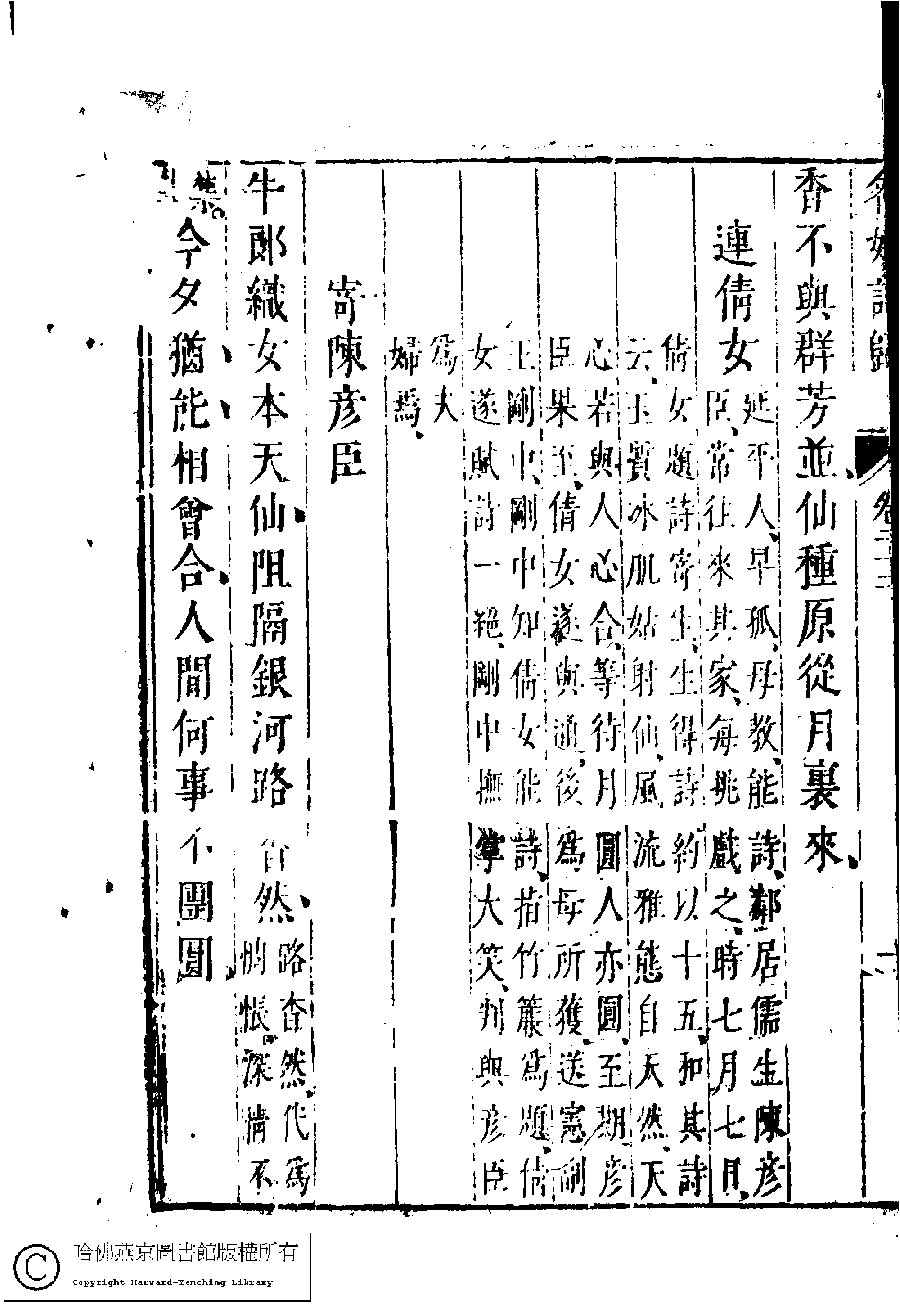 名媛詩歸 卷二十三
香不與群芳並、仙種原從月裏來、
連倩女
延平人、早孤、母教、能詩、鄰居儒生陳彦
臣、常往來其家、每挑戲之、時七月七日、
倩女題詩寄生、生得詩約以十五、和其詩
云、玉質冰肌姑射仙、風流雅態自天然、天
心若與人心合、等待月圓人亦圓、至期、彦
臣果至、倩女遂與通、後為母所獲、送憲副
王剛中、剛中知倩女能詩、指竹簾為題、倩
女遂賦詩一絕、剛中撫掌大笑、判與彦臣
為夫
婦焉、
寄陳彦臣
牛郎織女本天仙、阻隔銀河路杳然、
路杳然、代為
惆悵、深情不
禁。
今夕猶能相會合、人間何事不團圓、
哈佛燕京圖書館版權所有
Copyright Harvard-Yenching Library